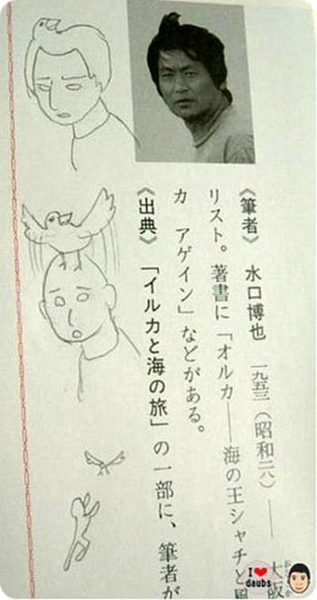 《筆者》 水口博也 一九五三(昭和二八)―― 大阪
リスト。著書に「オルカ――海の王シャチと風
カ アゲイン」などがある。
《出典》 「イルカと海の旅」の一部に、筆者が
I ❤
daubs